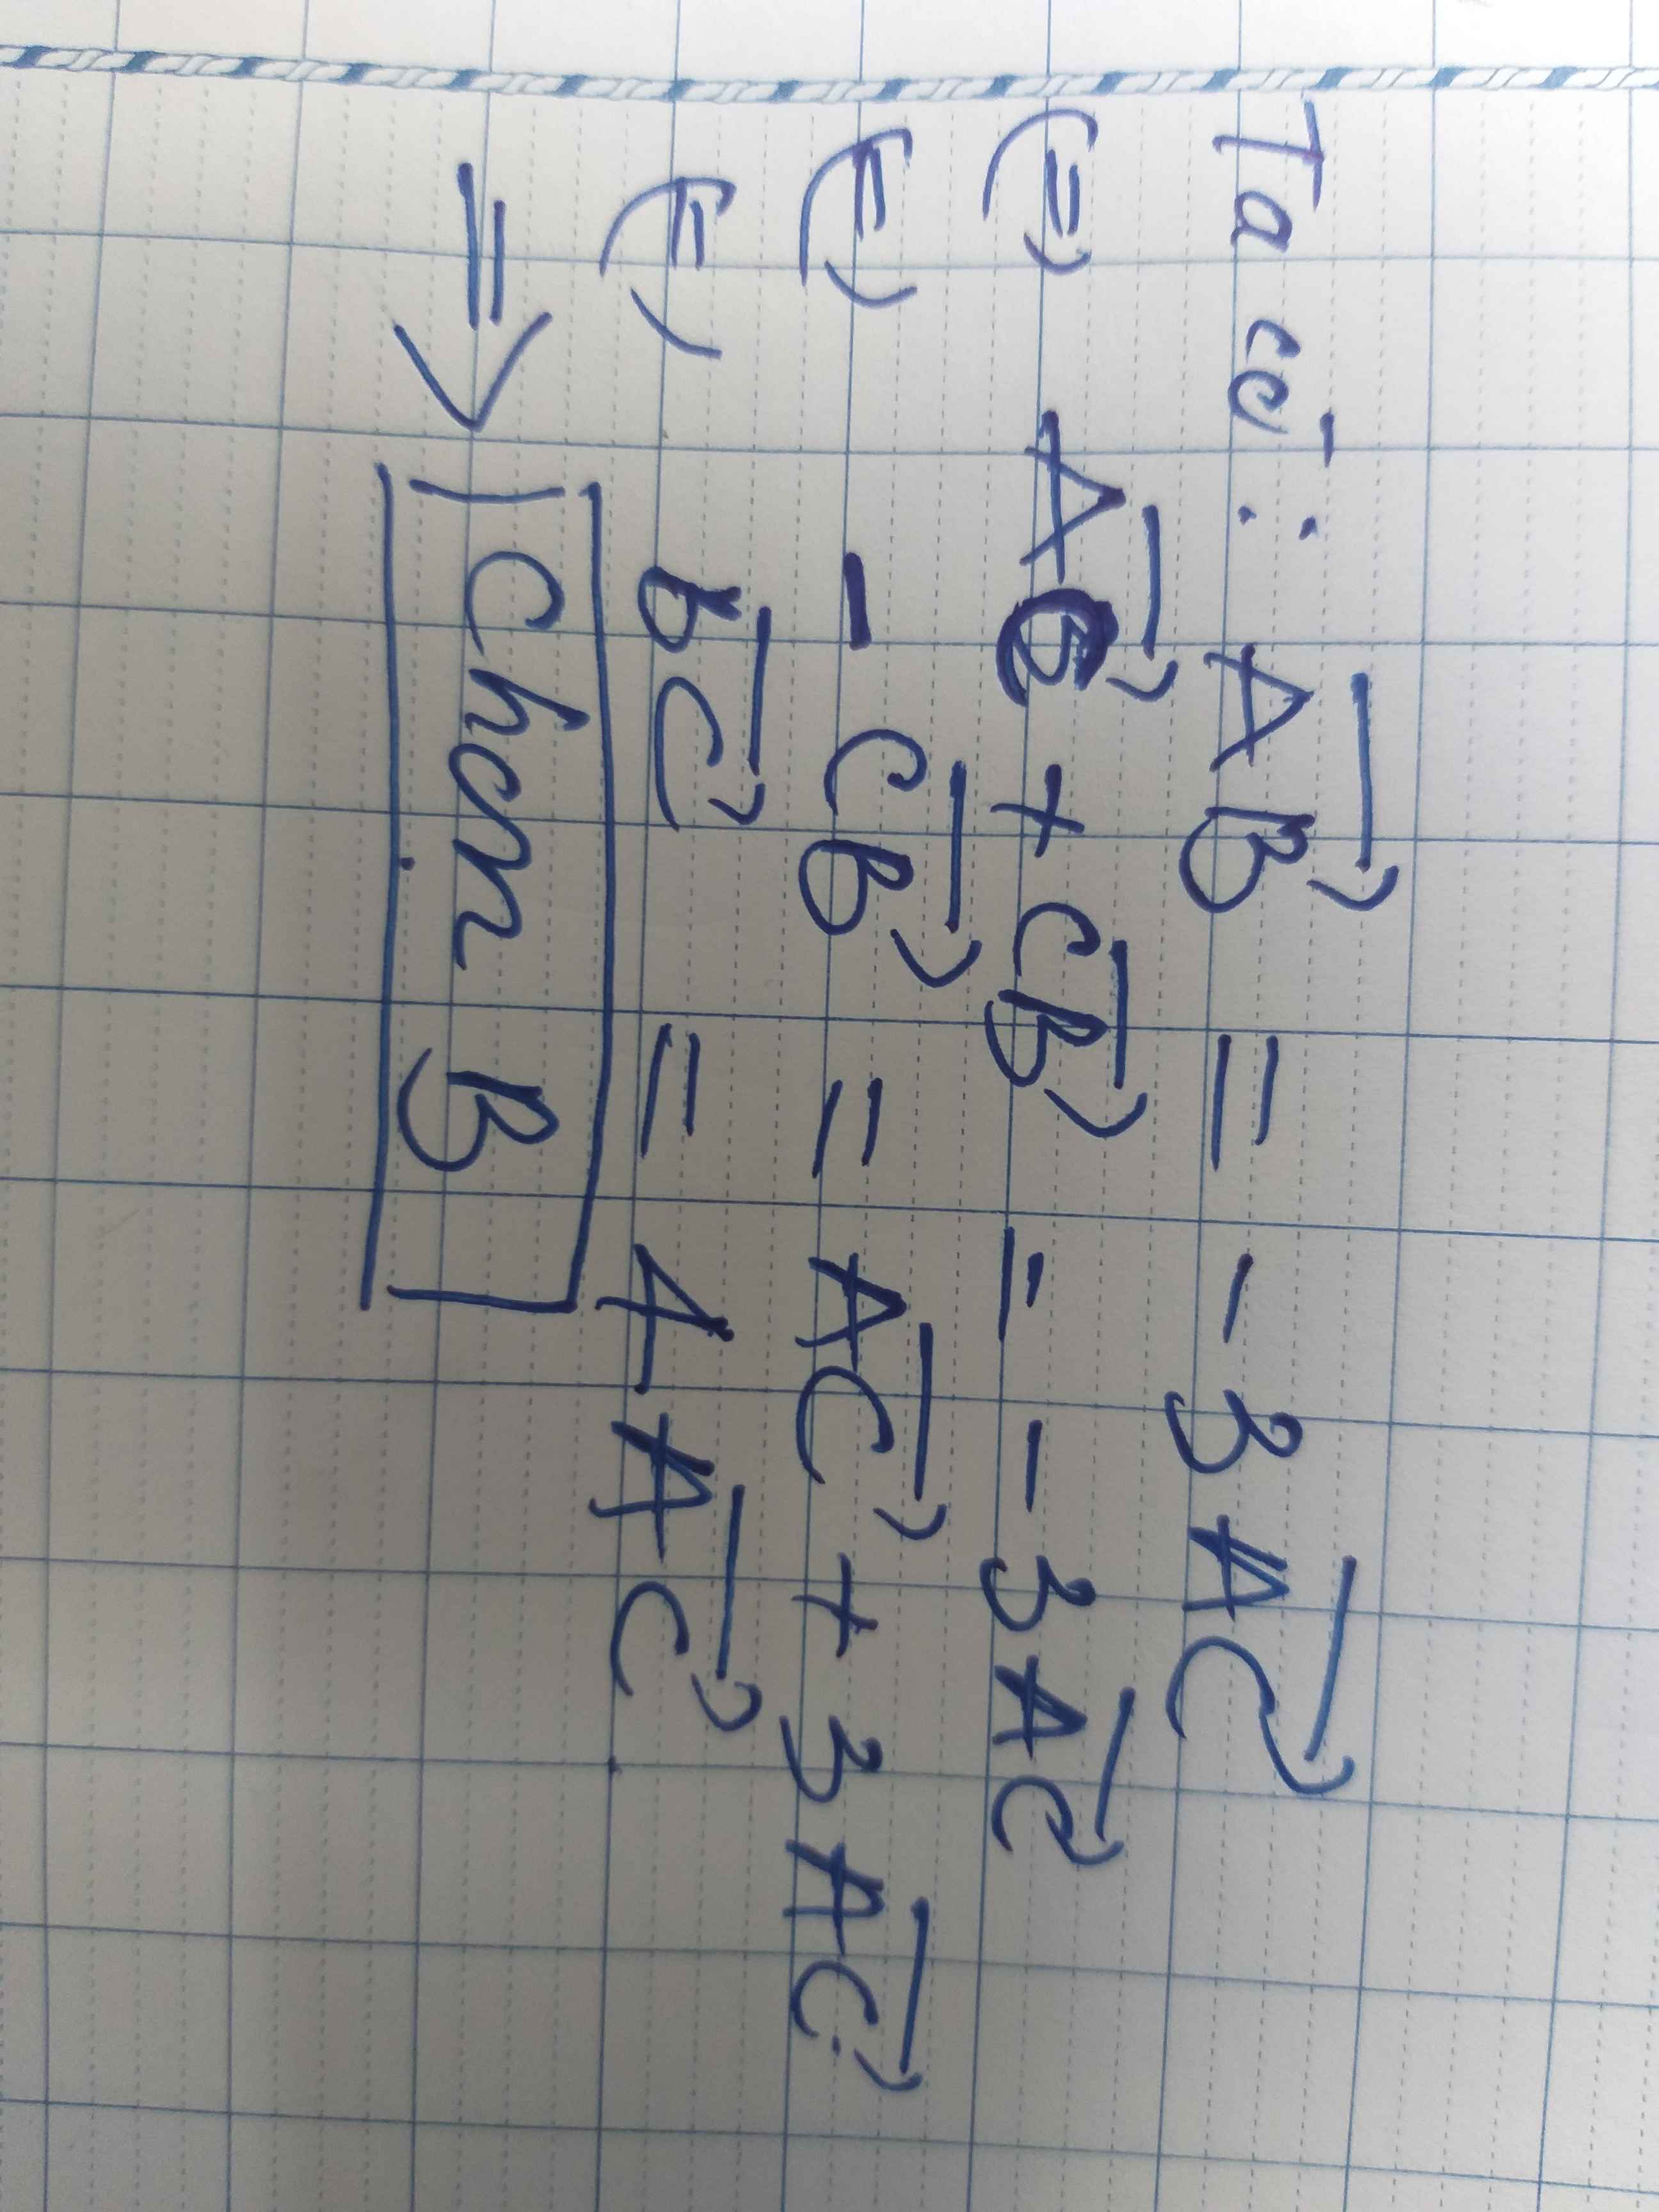 Ta có: $\overrightarrow{AB} = -3\overrightarrow{AC}$
(=) $\overrightarrow{AC} + \overrightarrow{CB} = -3\overrightarrow{AC}$
(=) $-\overrightarrow{CB} = \overrightarrow{AC} + 3\overrightarrow{AC}$
(=) $\overrightarrow{BC} = 4\overrightarrow{AC}$.
=> Chọn B